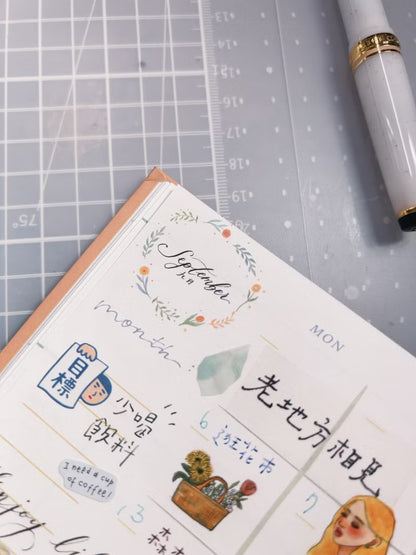 September
九月
month:
MON
目標
少喝
飲料
老地方相見
6
花市
I need a cup
of coffee!
7
13
森森
Enjoy
75°
13
12
16
17
18
19
20